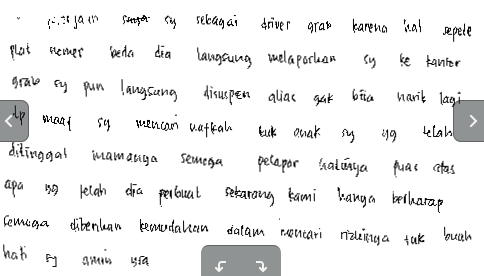 sy sebagai driver grab karena hal sepele
plat nomer beda dia langsung melaporkan sy ke kantor
grab sy pun langsung disuspen alias gak bisa narik lagi
tp maaf sy mencari nafkah tuk anak sy yg telah
ditinggal mamanya semoga pelapor hatinya puas atas
apa yg telah dia perbuat sekarang kami hanya berharap
semoga diberikan kemudahan dalam mencari rizkinya tuk buah
hati sy amin